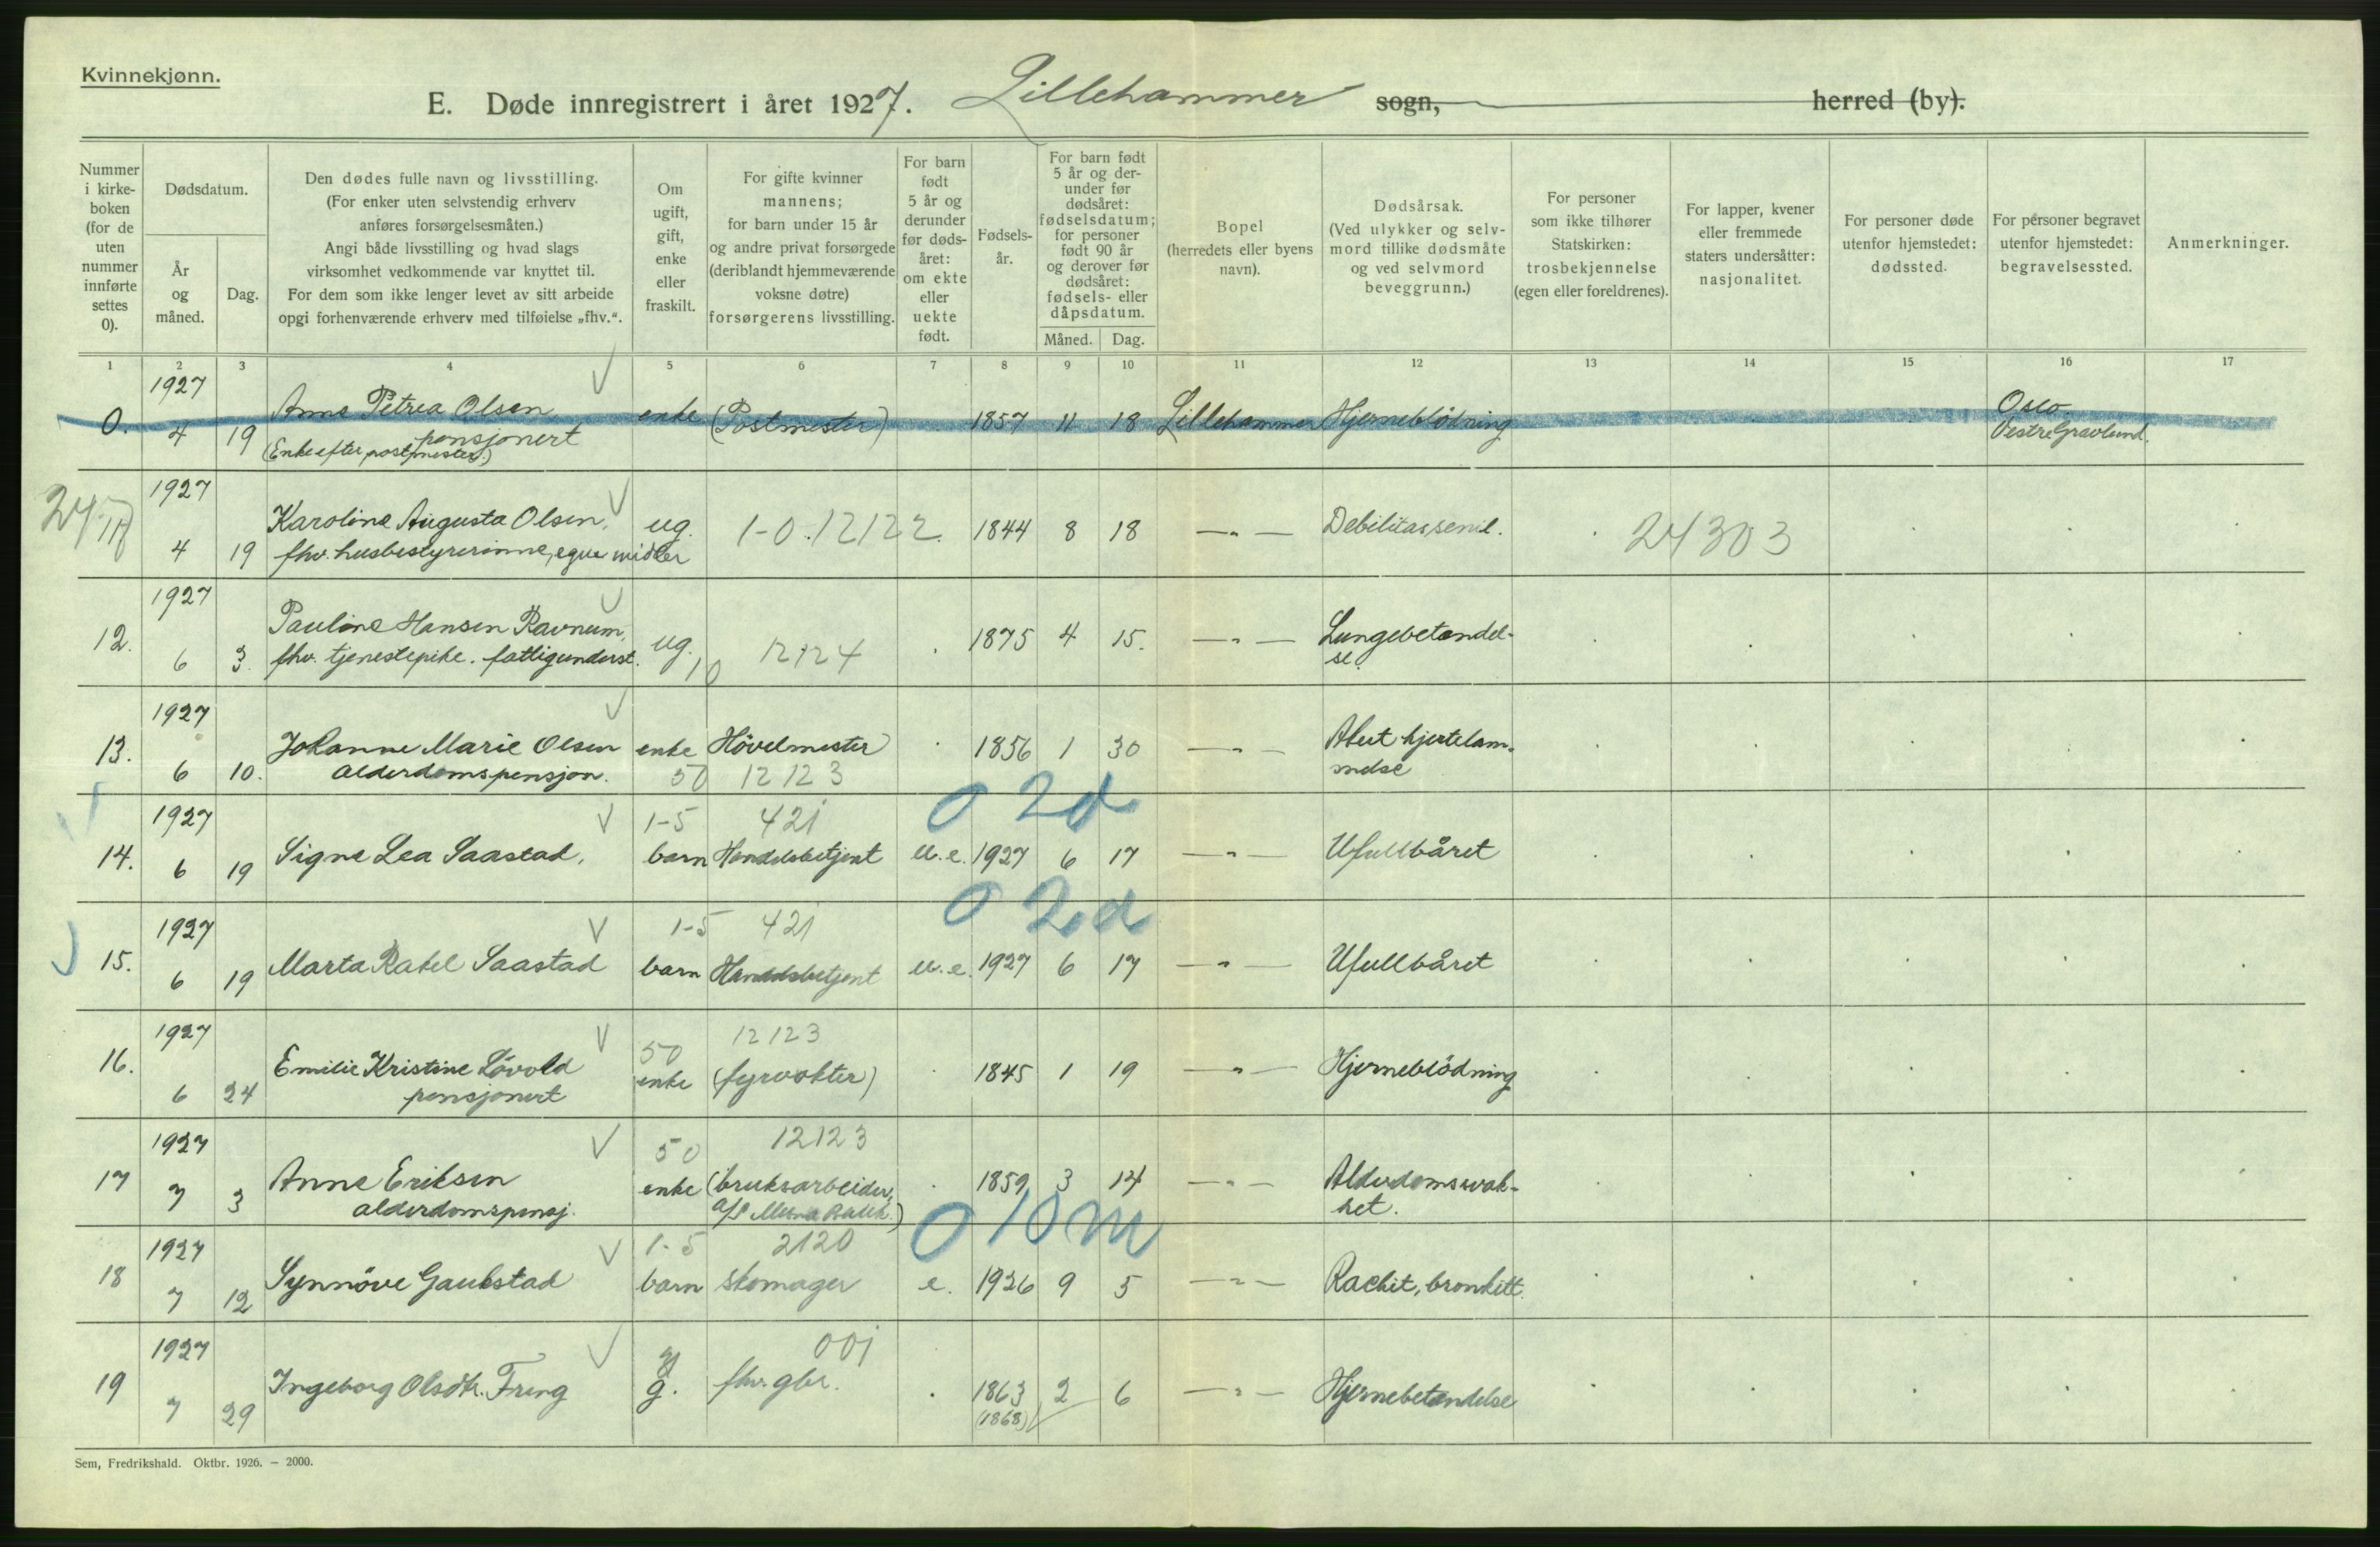 Kvinnekjønn.
E. Døde innregistrert i året 1927. Lillehammer sogn, herred (by).
Nummer i kirke-boken (for de uten nummer innførte settes 0).
Dødsdatum.
År og måned.
Dag.
Den dødes fulle navn og livsstilling.
(For enker uten selvstendig erhverv
anføres forsørgelsesmåten.)
Angi både livsstilling og hvad slags
virksomhet vedkommende var knyttet til.
For dem som ikke lenger levet av sitt arbeide
opgi forhenværende erhverv med tilføielse „fhv.“.
Om ugift, gift, enke eller fraskilt.
For gifte kvinner
mannens;
for barn under 15 år
og andre privat forsørgede
(deriblandt hjemmeværende
voksne døtre)
forsørgerens livsstilling.
For barn født 5 år og derunder før døds-året: om ekte eller uekte født.
Fødsels-år.
For barn født 5 år og der-under før dødsåret: fødselsdatum; for personer født 90 år og derover før dødsåret: fødsels- eller dåpsdatum.
Måned. Dag.
Bopel
(herredets eller byens
navn).
Dødsårsak.
(Ved ulykker og selv-
mord tillike dødsmåte
og ved selvmord
beveggrunn.)
For personer
som ikke tilhører
Statskirken:
trosbekjennelse
(egen eller foreldrenes).
For lapper, kvener
eller fremmede
staters undersåtter:
nasjonalitet.
For personer døde
utenfor hjemstedet:
dødssted.
For personer begravet
utenfor hjemstedet:
begravelsessted.
Anmerkninger.
1 2 3 4 5 6 7 8 9 10 11 12 13 14 15 16 17
1927
0. 4 19 Anne Petrea Olsen enke (Postmester) 1857 11 18 Lillehammer Hjerneblödning Oslo
pensjonert Vestre Gravlund.
(Enke efter postmester.)
1927
4 19 Karoline Augusta Olsen, ug. 1-0.12122. 1844 8 18 —"— Debilitas senil. 24303
fhv. husbestyrerinne, egne midler
1927
12. 6 3. Pauline Hansen Ravnum, ug. 10 12124 1875 4 15. —"— Lungebetendel-
fhv. tjenestepike. fattigunderst. se.
1927
13. 6 10. Johanne Marie Olsen enke Hövelmester 1856 1 30 —"— Akut hjertelam-
Alderdomspensjon. 50 12123 melse
1927 1-5 421 0 2d
14. 6 19 Signe Lea Saastad, barn Handelsbetjent u.e. 1927 6 17 —"— Ufullbåret
1927 1-5 421 0 2d
15. 6 19 Marta Rakel Saastad barn Handelsbetjent u.e. 1927 6 17 —"— Ufullbåret
1927 50 12123
16. 6 24 Emilie Kristine Lövold enke (fyrvokter) 1845 1 19 —"— Hjerneblödning
pensjonert
1927 50 12123
17 7 3 Anne Eriksen enke (bruksarbeider, 1859 3 14 —"— Alderdomssvak-
alderdomspensj. A/S Mesna Bruk.) het.
1927 1-5 2120 0 10 m
18 7 12 Synnöve Gaukstad barn skomager e. 1926 9 5 —"— Rachit, bronkitt.
1927 001
19 7 29 Ingeborg Olsdtr. Freng g. fhv. gbr. 1863 2 6 —"— Hjernebetendelse
(1868)
Sem, Fredrikshald. Oktbr. 1926. — 2000.